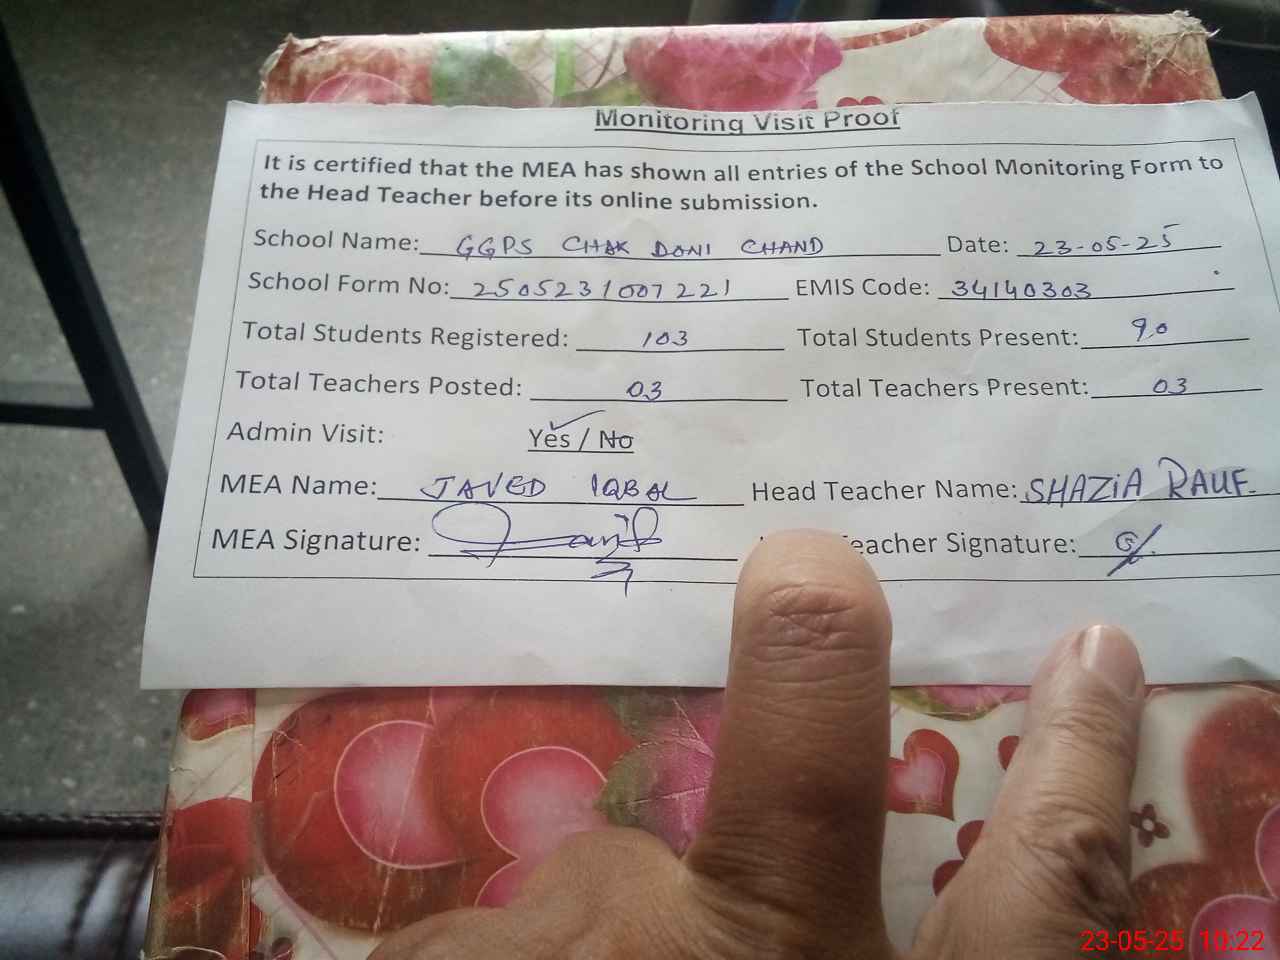 Monitoring Visit Proof
It is certified that the MEA has shown all entries of the School Monitoring Form to
the Head Teacher before its online submission.
School Name: GGPS CHAK DONI CHAND Date: 23-05-25
School Form No: 2505231007221 EMIS Code: 34140303
Total Students Registered: 103 Total Students Present: 90
Total Teachers Posted: 03 Total Teachers Present: 03
Admin Visit: Yes / No
MEA Name: JAVED IQBAL Head Teacher Name: SHAZIA RAUF
MEA Signature: Teacher Signature:
23-05-25 10:22